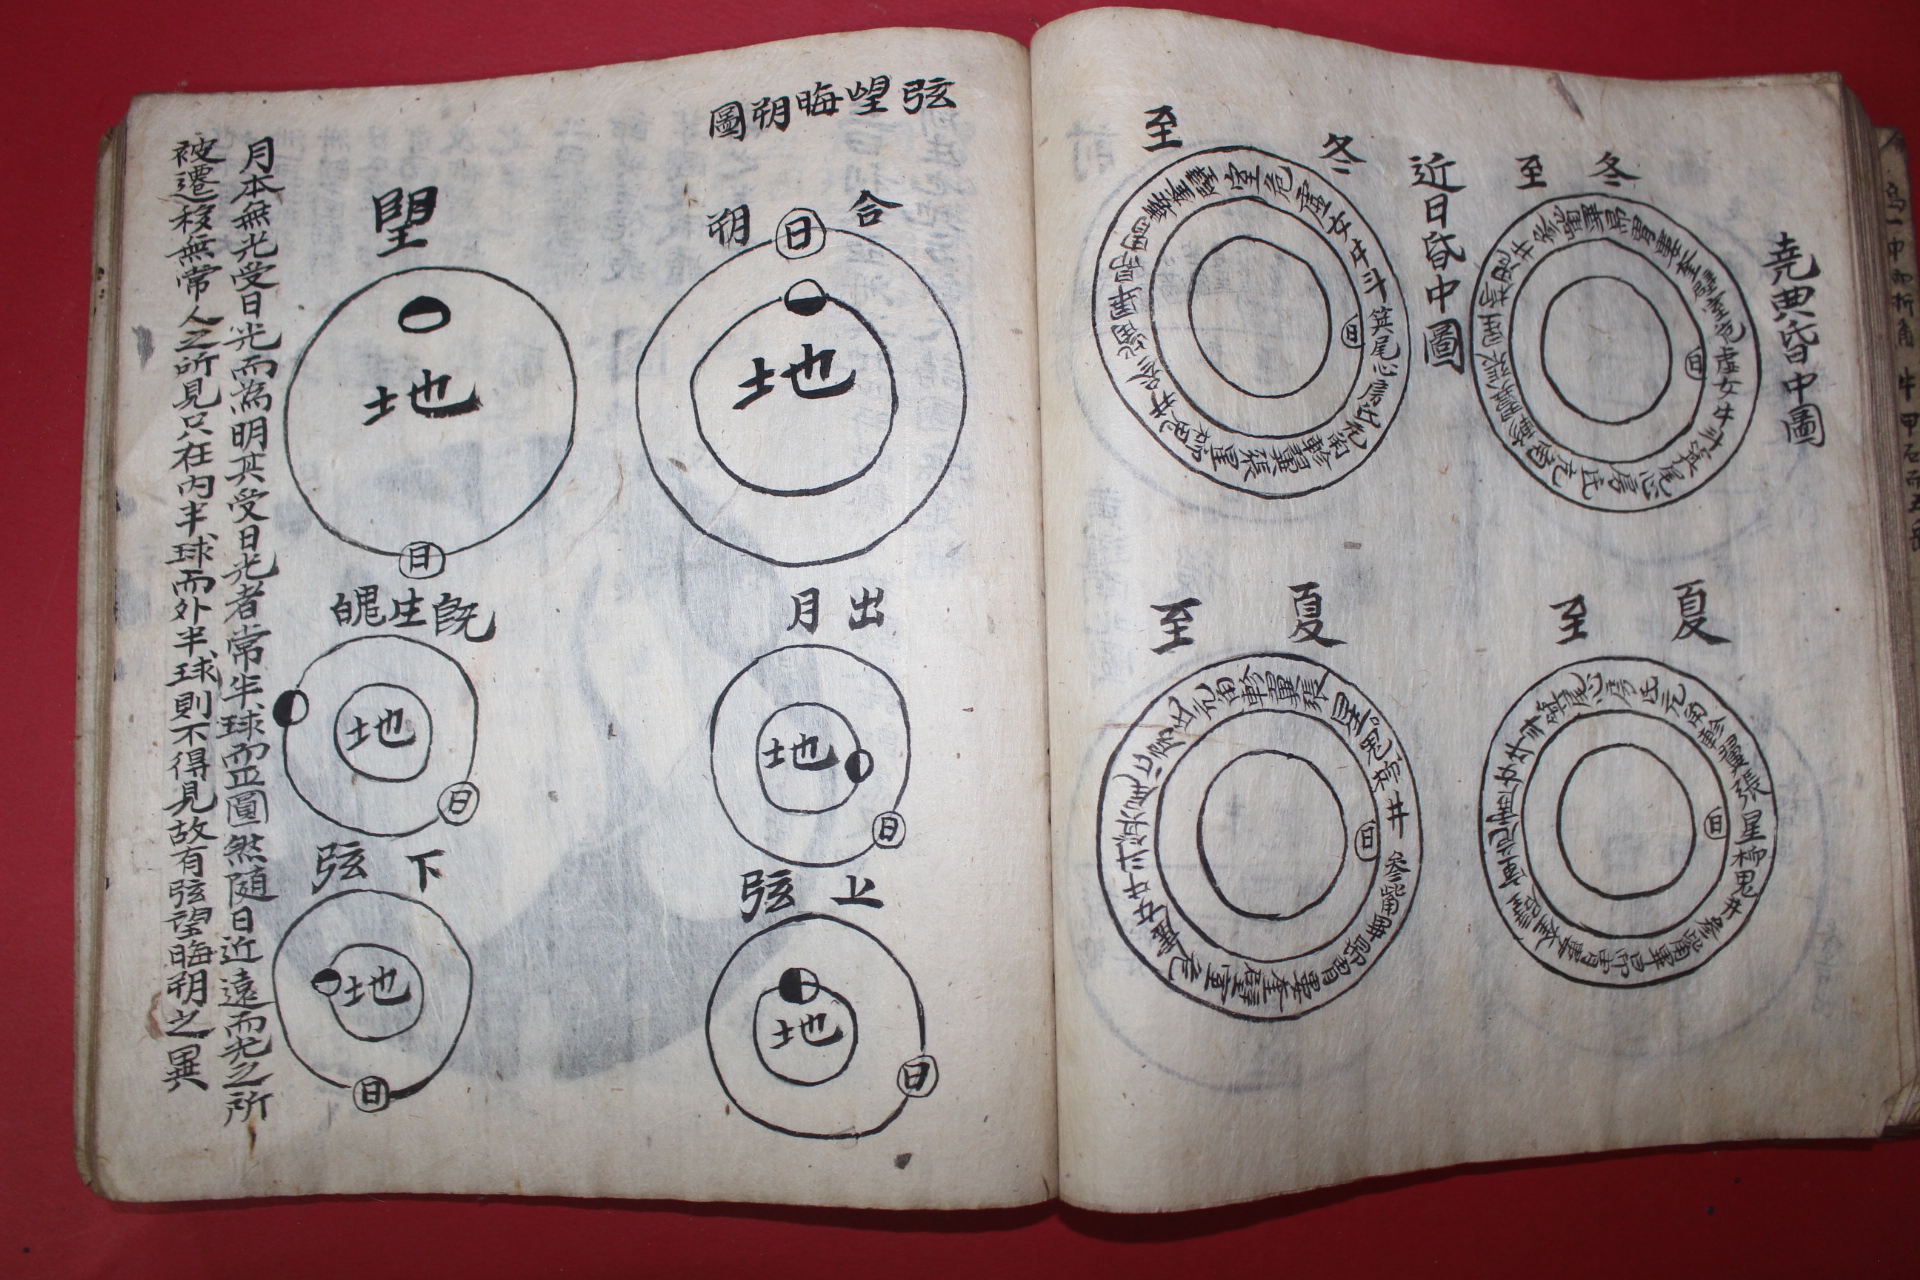 堯典昏中圖
冬至
虛女牛斗箕尾心房氐亢角軫翼張星柳鬼井參觜畢昴胃婁奎壁室危
日
夏至
張星柳鬼井參觜畢昴胃婁奎壁室危虛女牛斗箕尾心房氐亢角軫翼
日
近日昏中圖
冬至
箕尾心房氐亢角軫翼張星柳鬼井參觜畢昴胃婁奎壁室危虛女牛斗
日
夏至
井參觜畢昴胃婁奎壁室危虛女牛斗箕尾心房氐亢角軫翼張星柳鬼
日
弦望晦朔圖
合朔
日
地
出月
地
日
上弦
地
日
望
地
日
既生魄
地
日
下弦
地
日
月本無光受日光而為明其受日光者常半球而正圓然隨日近遠而光之所
被遷移無常人之所見只在內半球而外半球則不得見故有弦望晦朔之異